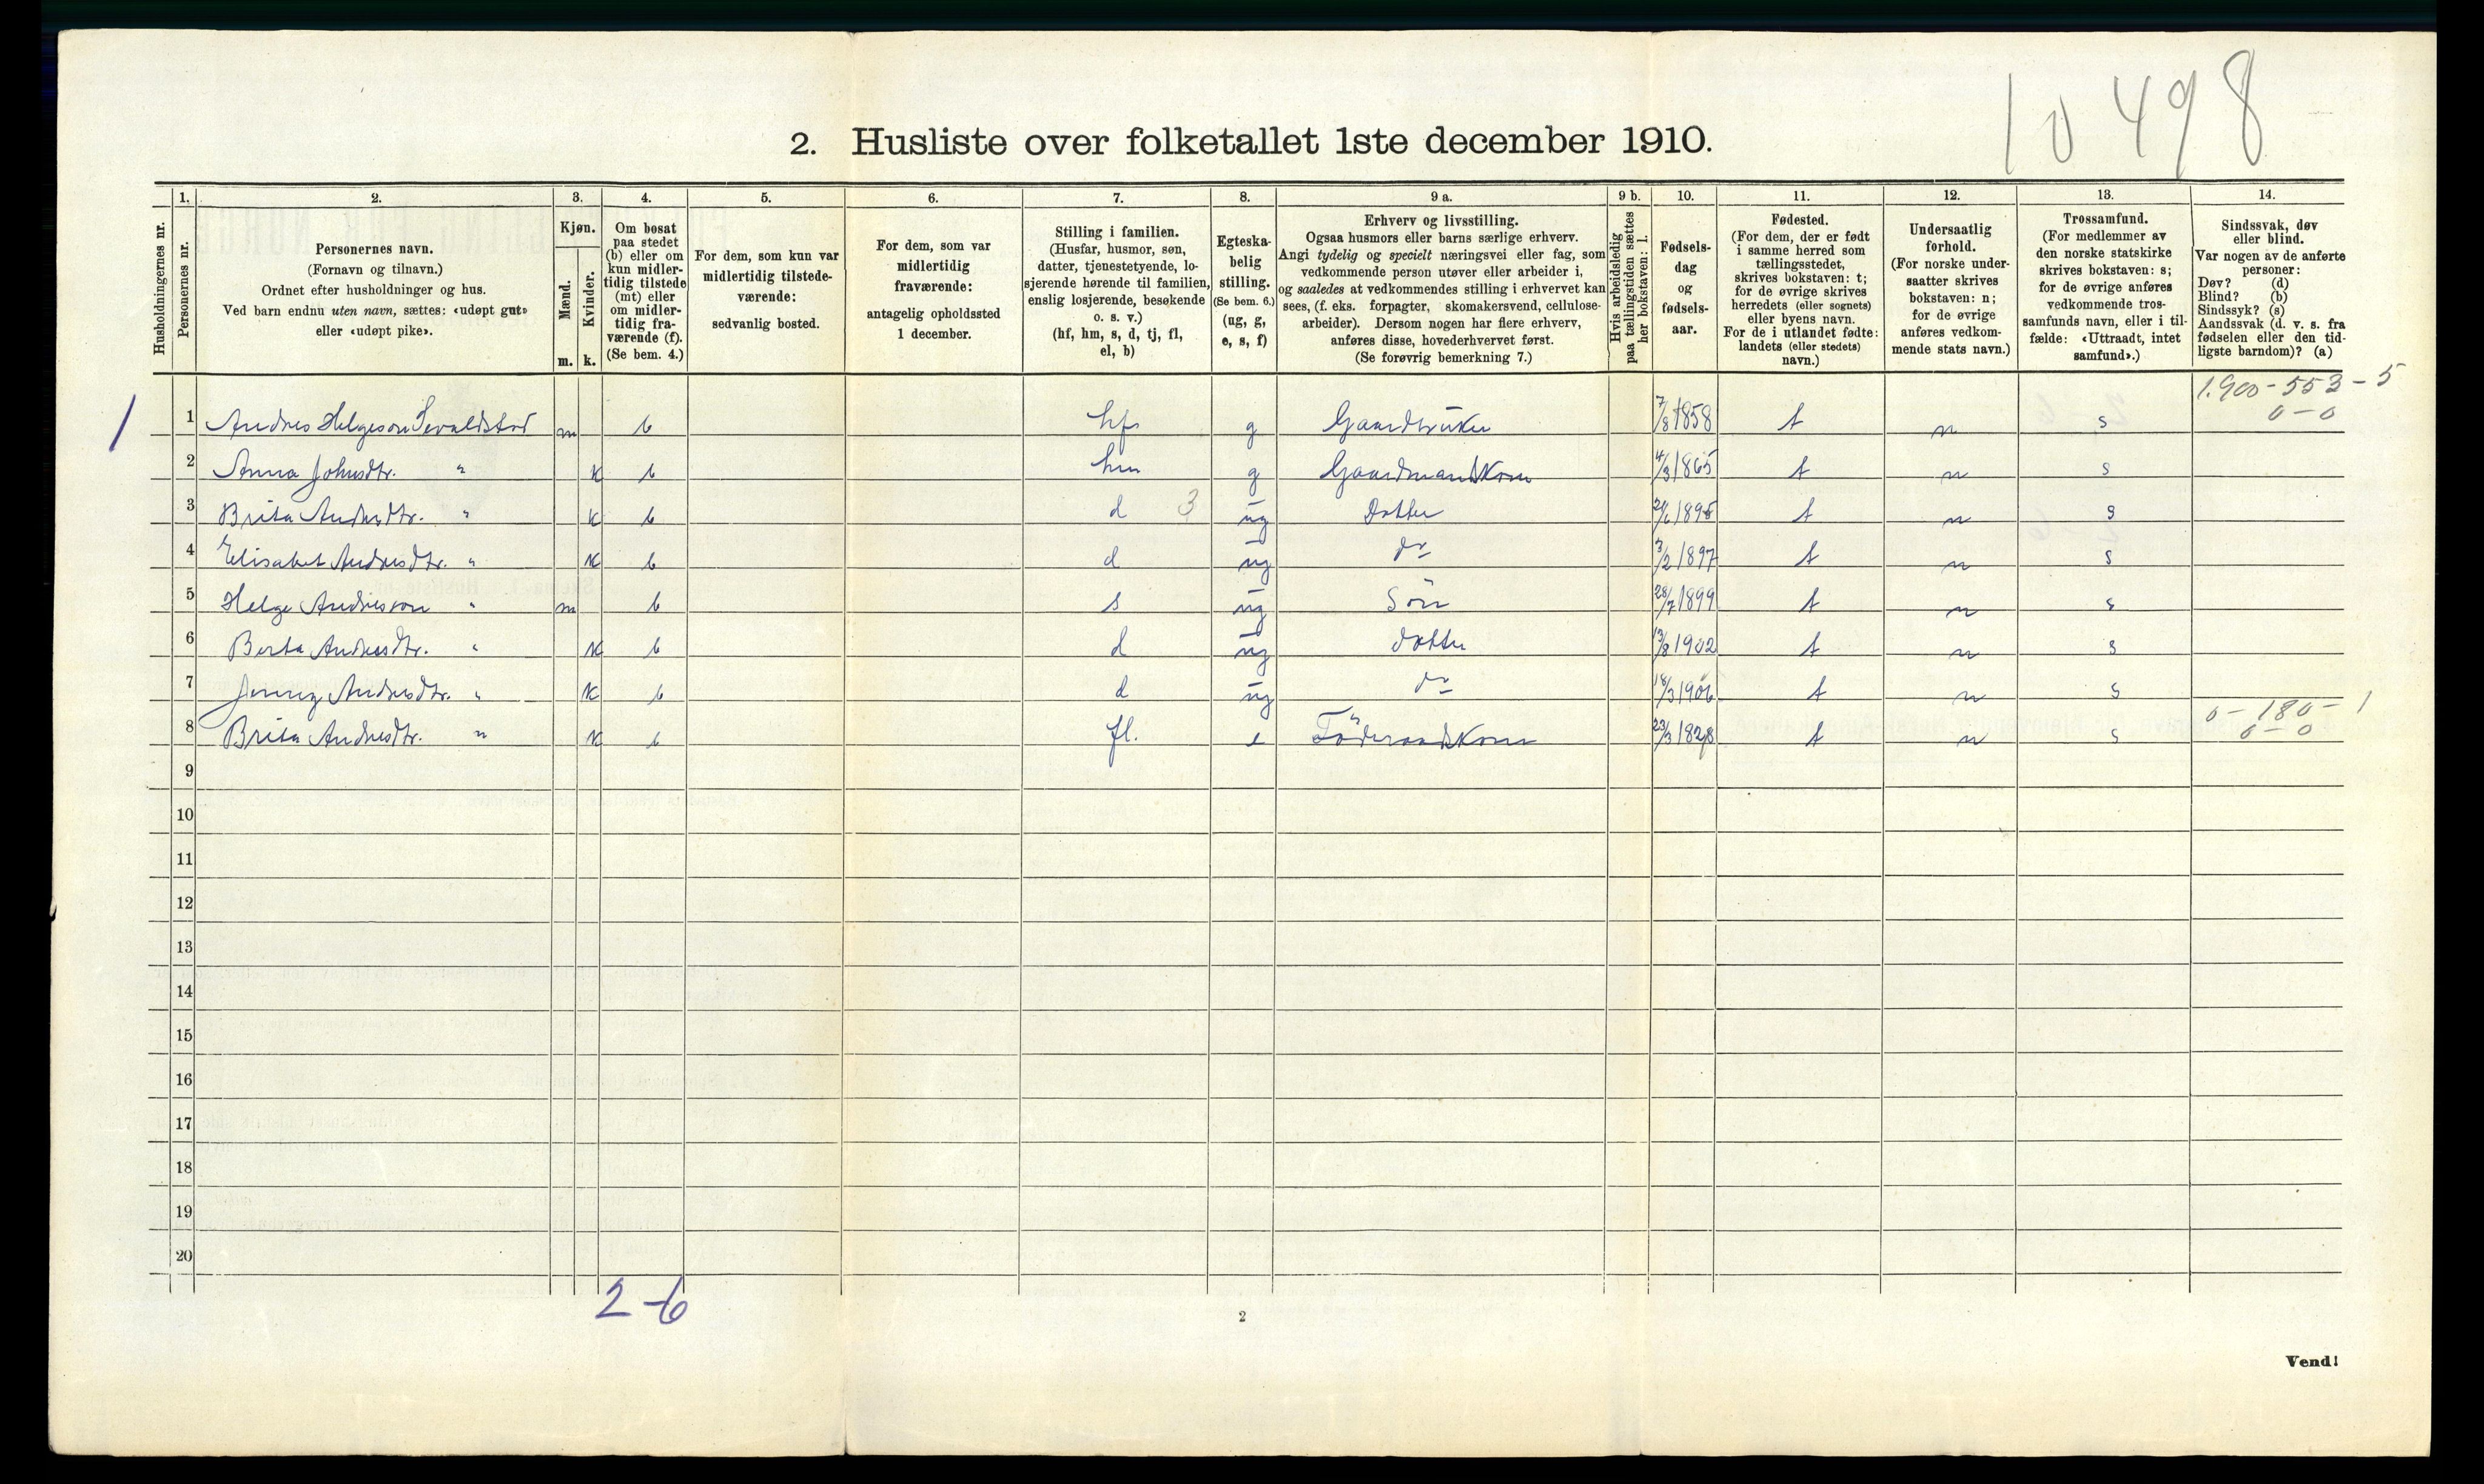 10498
2. Husliste over folketallet 1ste december 1910.
Husholdningernes nr.
1.
Personernes nr.
2.
Personernes navn.
(Fornavn og tilnavn.)
Ordnet efter husholdninger og hus.
Ved barn endnu uten navn, sættes: «udøpt gut»
eller «udøpt pike».
3.
Kjøn.
Mænd.
m.
Kvinder.
k.
4.
Om bosat
paa stedet
(b) eller om
kun midler-
tidig tilstede
(mt) eller
om midler-
tidig fra-
værende (f).
(Se bem. 4.)
5.
For dem, som kun var
midlertidig tilstede-
værende:
sedvanlig bosted.
6.
For dem, som var
midlertidig
fraværende:
antagelig opholdssted
1 december.
7.
Stilling i familien.
(Husfar, husmor, søn,
datter, tjenestetyende, lo-
sjerende hørende til familien,
enslig losjerende, besøkende
o. s. v.)
(hf, hm, s, d, tj, fl,
el, b)
8.
Egteska-
belig
stilling.
(Se bem. 6.)
(ug, g,
e, s, f)
9 a.
Erhverv og livsstilling.
Ogsaa husmors eller barns særlige erhverv.
Angi tydelig og specielt næringsvei eller fag, som
vedkommende person utøver eller arbeider i,
og saaledes at vedkommendes stilling i erhvervet kan
sees, (f. eks. forpagter, skomakersvend, cellulose-
arbeider). Dersom nogen har flere erhverv,
anføres disse, hovederhvervet først.
(Se forøvrig bemerkning 7.)
9 b.
Hvis arbeidsledig
paa tællingstiden sættes
her bokstaven: l.
10.
Fødsels-
dag
og
fødsels-
aar.
11.
Fødested.
(For dem, der er født
i samme herred som
tællingsstedet,
skrives bokstaven: t;
for de øvrige skrives
herredets (eller sognets)
eller byens navn.
For de i utlandet fødte:
landets (eller stedets)
navn.)
12.
Undersaatlig
forhold.
(For norske under-
saatter skrives
bokstaven: n;
for de øvrige
anføres vedkom-
mende stats navn.)
13.
Trossamfund.
(For medlemmer av
den norske statskirke
skrives bokstaven: s;
for de øvrige anføres
vedkommende tros-
samfunds navn, eller i til-
fælde: «Uttraadt, intet
samfund».)
14.
Sindssvak, døv
eller blind.
Var nogen av de anførte
personer:
Døv? (d)
Blind? (b)
Sindssyk? (s)
Aandssvak (d. v. s. fra
fødselen eller den tid-
ligste barndom)? (a)
1.900-553-5
0-0
1 1 Andres Helgeson Sevaldstad m b hf g Gaardbruker 7/8 1858 t n s
2 Anna Johnsdtr. " k b hm g Gaardmandskone 4/3 1865 t n s
3 Brita Andersdtr. " k b d 3 ug Dotter 1895 t n s
4 Elisabet Andresdtr. " k b d ug do 3/2 1897 t n s
5 Helge Andresson " m b s ug Sön 28/7 1899 t n s
6 Berta Andresdtr. " k b d ug dotter 13/8 1902 t n s
7 Jenny Andresdtr. " k b d ug do 18/3 1906 t n s
0-180-1
8 Brita Andresdtr. " k b fl. e Föderaadskone 23/3 1828 t n s 0-0
9
10
11
12
13
14
15
16
17
18
19
20
2-6
2
Vend!